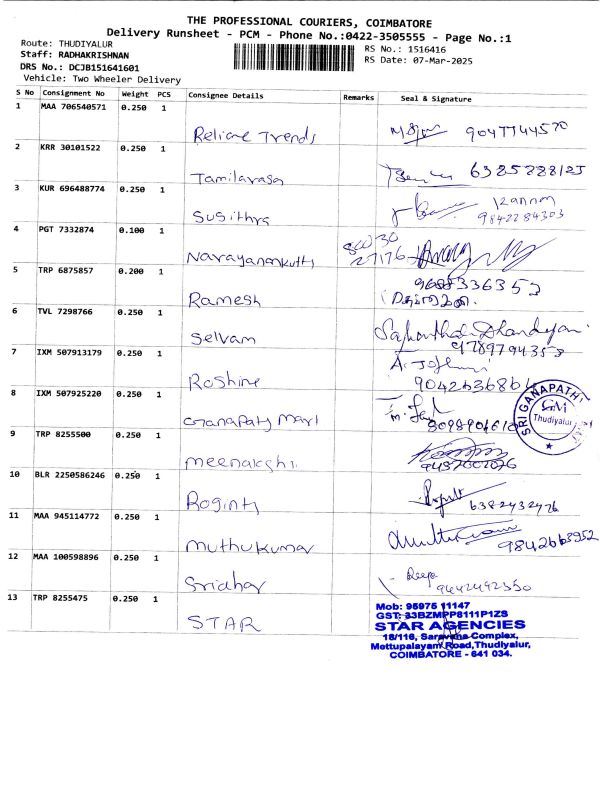 THE PROFESSIONAL COURIERS, COIMBATORE
Delivery Runsheet - PCM - Phone No.:0422-3505555 - Page No.:1
Route: THUDIYALUR
Staff: RADHAKRISHNAN
DRS No.: DCJB151641601
Vehicle: Two Wheeler Delivery
RS No.: 1516416
RS Date: 07-Mar-2025
S No Consignment No Weight PCS Consignee Details Remarks Seal & Signature
1 MAA 706540571 0.250 1
Reliane Trends
2 KRR 30101522 0.250 1
Tamilarasa 6385288125
3 KUR 696488774 0.250 1
Susithra Kannan
9842284303
4 PGT 7332874 0.100 1
Narayanankutty
5 TRP 6875857 0.200 1
Ramesh
6 TVL 7298766 0.250 1
Selvam
9789794353
7 IXM 507913179 0.250 1
Roshine
8 IXM 507925220 0.250 1
Ganapaty Mart
SRI GANAPATHI
Thudiyalur
9 TRP 8255500 0.250 1
meenakshi
10 BLR 2250586246 0.250 1
Roginth 6382432476
11 MAA 945114772 0.250 1
muthukumar
12 MAA 100598896 0.250 1
Sridhar Deepa
9442492350
13 TRP 8255475 0.250 1
STAR
Mob: 95975 11147
GST: 33BZMPP8111P1ZS
STAR AGENCIES
18/116, Saravana Complex,
Mettupalayam Road,Thudiyalur,
COIMBATORE - 641 034.